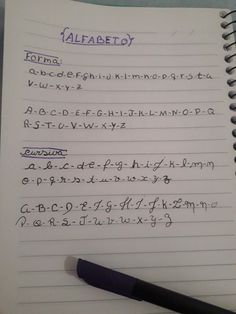 {ALFABETO}
Forma:
a-b-c-d-e-f-g-h-i-j-k-l-m-n-o-p-q-r-s-t-u
v-w-x-y-z
A-B-C-D-E-F-G-H-I-J-K-L-M-N-O-P-Q
R-S-T-U-V-W-X-Y-Z
cursiva
a-b-c-d-e-f-g-h-i-j-k-l-m-n
o-p-q-r-s-t-u-v-w-x-y-z
A-B-C-D-E-F-G-H-I-J-K-L-M-N-O
P-Q-R-S-T-U-V-W-X-Y-Z